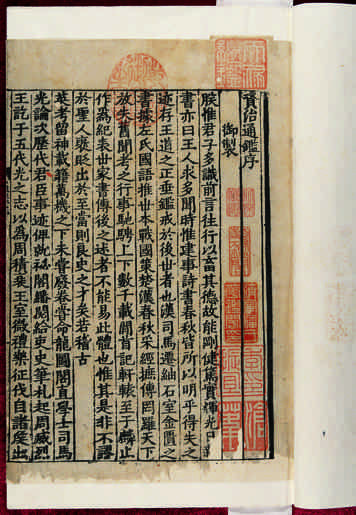 資治通鑑序
御製
朕惟君子多識前言往行以畜其德故能剛健篤實輝光日新
書亦曰王人求多聞時惟建事詩書春秋皆所以明乎得失之
迹存王道之正垂鑑戒於後世者也漢司馬遷紬石室金匱之
書據左氏國語推世本戰國策楚漢春秋采經摭傳罔羅天下
放失舊聞考之行事馳騁上下數千載間首記軒轅至于麟止
作為紀表世家書傳後之述者不能易此體也惟其是非不謬
於聖人褒貶出於至當則良史之才矣若稽古
英考留神載籍萬機之下未嘗廢卷嘗命龍圖閣直學士司馬
光論次歷代君臣事迹俾就祕閣繙閱給吏史筆札起周威烈
王訖于五代光之志以為周積衰王室微禮樂征伐自諸侯出